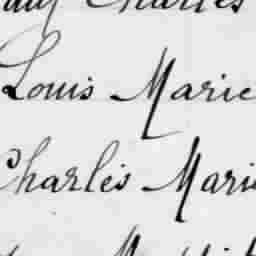 Charles
Louis Marie
Charles Mari